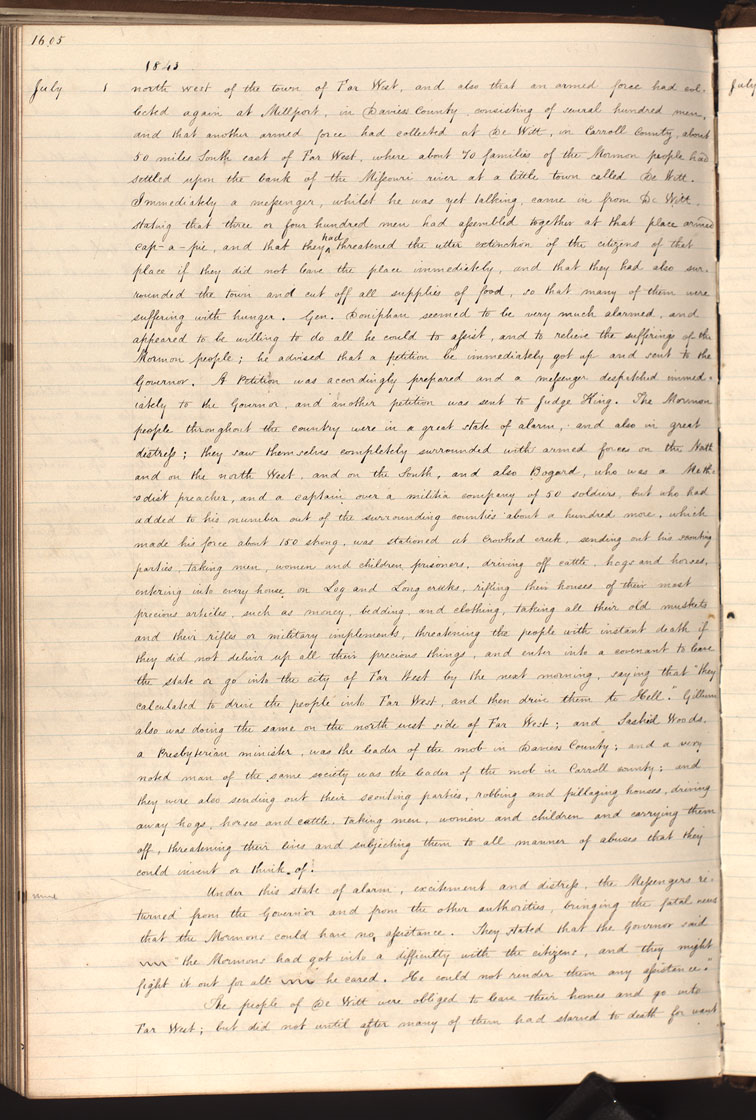 1605
1843
July 1 north west of the town of Far West, and also that an armed force had col- July
lected again at Millport, in Daviess County, consisting of several hundred men,
and that another armed force had collected at De Witt, in Carroll County, about
50 miles South east of Far West, where about 70 families of the Mormon people had
settled upon the bank of the Missouri river at a little town called De Witt.
Immediately a messenger, whilst he was yet talking, came in from De Witt,
stating that three or four hundred men had assembled together at that place armed
cap-a-pie, and that they had threatened the utter extinction of the citizens of that
place if they did not leave the place immediately, and that they had also sur-
rounded the town and cut off all supplies of food, so that many of them were
suffering with hunger. Gen. Doniphan seemed to be very much alarmed, and
appeared to be willing to do all he could to assist, and to relieve the sufferings of the
Mormon people; he advised that a petition be immediately got up and sent to the
Governor. A Petition was accordingly prepared and a messenger despatched immed-
iately to the Governor, and another petition was sent to Judge King. The Mormon
people throughout the country were in a great state of alarm, and also in great
distress; they saw themselves completely surrounded with armed forces on the North
and on the north West, and on the South, and also Bogard, who was a Meth-
odist preacher, and a captain over a militia company of 50 soldiers, but who had
added to his number out of the surrounding counties about a hundred more, which
made his force about 150 strong, was stationed at Crooked creek, sending out his scouting
parties, taking men, women and children prisoners, driving off cattle, hogs and horses,
entering into every house on Log and Long creeks, rifling their houses of their most
precious articles, such as money, bedding, and clothing, taking all their old muskets
and their rifles or military implements, threatening the people with instant death if
they did not deliver up all their precious things, and enter into a covenant to leave
the state or go into the city of Far West by the next morning, saying that "they
calculated to drive the people into Far West, and then drive them to Hell." Gillum
also was doing the same on the north west side of Far West; and Sashiel Woods,
a Presbyterian minister, was the leader of the mob in Daviess County; and a very
noted man of the same society was the leader of the mob in Carroll county; and
they were also sending out their scouting parties, robbing and pillaging houses, driving
away hogs, horses and cattle, taking men, women and children and carrying them
off, threatening their lives and subjecting them to all manner of abuses that they
could invent or think of.
Under this state of alarm, excitement and distress, the Messengers re-
turned from the Governor and from the other authorities, bringing the fatal news
that the Mormons could have no assistance. They stated that the Governor said
"the Mormons had got into a difficulty with the citizens, and they might
fight it out for all he cared. He could not render them any assistance."
The people of De Witt were obliged to leave their homes and go into
Far West; but did not until after many of them had starved to death for want